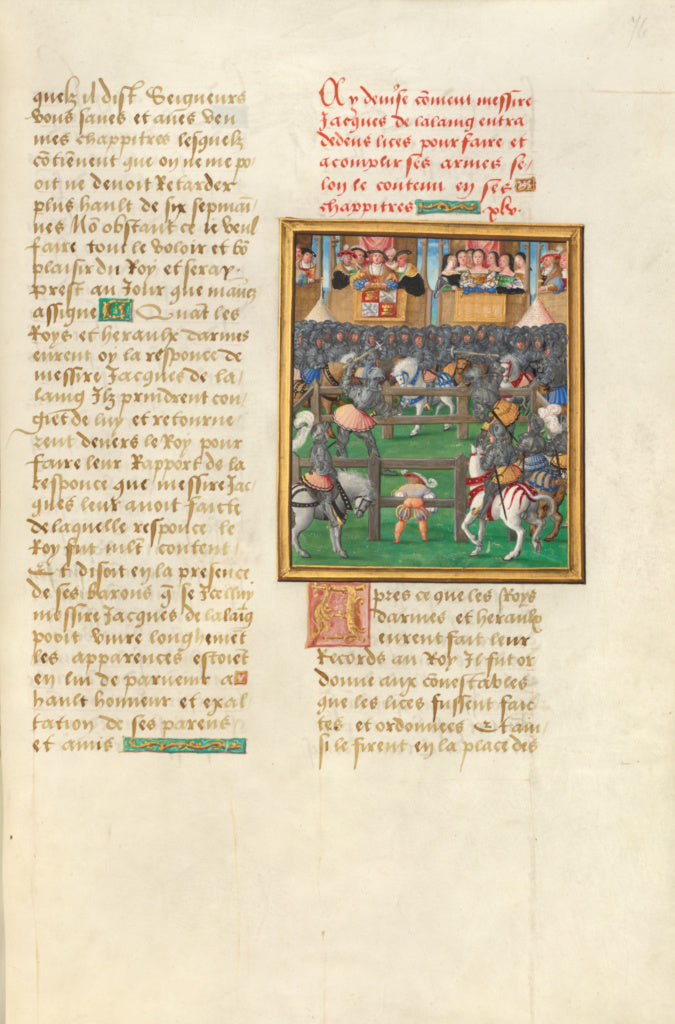 quelz il dist Seigneurs
vous saues et aues veu
mes chappitres lesquelz
cōtiēnent que on ne me po
oit ne deuoit Retarder
plus hault de six sepmai
nes Nō obstant ce ie veul
faire tout le voloir et bō
plaisir du Roy et seray
prest au Jour que maues
assigne Quāt les
Roys et heraulx darmes
eurent oy la responce de
messire Jacques de la
laing Ilz prindrent con
giet de luy et retourne
rent deuers le Roy pour
faire leur Rapport de la
responce que messire Jac
ques leur auoit faicte
de laquelle responce le
Roy fut mlt content
Et disoit en la presence
de ses barons q̄ se Icelluy
messire Jacques de lalaīg
povit viure longhemēt
les apparences estoiēt
en lui de paruenir a
hault honneur et exal
tation de ses parens
et amis
Cy deuise cōment messire
Jacques de lalaing entra
dedens lices pour faire et
acomplir ses armes se
lon le contenu en ses
chappitres xlv.
Apres ce que les Roys
darmes et heraulx
eurent fait leur
Records au Roy Il fut or
donne aux cōnestables
que les lices fussent faic
tes et ordonnees Et ain
si le firent en la place des
76